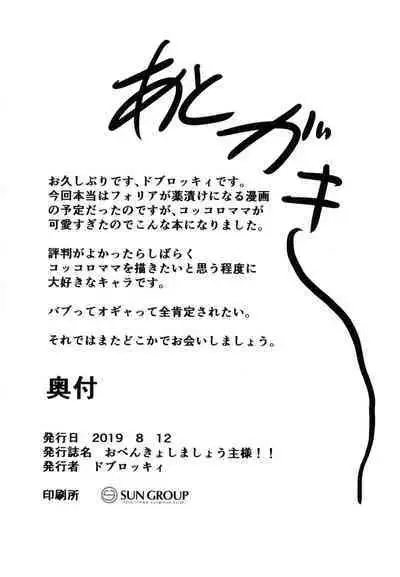 あとがキー
お久しぶりです、ドブロッキィです。
今回本当はフォリアが薬漬けになる漫画
の予定だったのですが、コッコロママが
可愛すぎたのでこんな本になりました。
評判がよかったらしばらく
コッコロママを描きたいと思う程度に
大好きなキャラです。
バブってオギャって全肯定されたい。
それではまたどこかでお会いしましょう。
奥付
発行日 2019 8 12
発行誌名 おべんきょしましょう主様！！
発行者 ドブロッキィ
印刷所 SUN GROUP